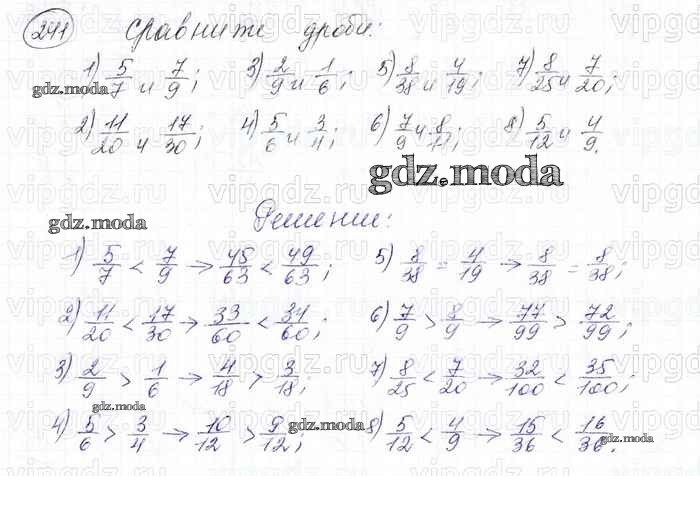 241 Сравните дроби:
1) 5/7 и 7/9; 3) 2/9 и 1/6; 5) 8/38 и 4/19; 7) 8/25 и 7/20;
gdz.moda
2) 11/20 и 17/30; 4) 5/6 и 3/4; 6) 7/9 и 8/11; 8) 5/12 и 4/9.
gdz.moda
gdz.moda Решение:
1) 5/7 < 7/9 → 45/63 < 49/63; 5) 8/38 = 4/19 → 8/38 = 8/38;
2) 11/20 < 17/30 → 33/60 < 34/60; 6) 7/9 > 8/9 → 77/99 > 72/99;
3) 2/9 > 1/6 → 4/18 > 3/18; 7) 8/25 < 7/20 → 32/100 < 35/100;
gdz.moda
4) 5/6 > 3/4 → 10/12 > 9/12; 8) 5/12 < 4/9 → 15/36 < 16/36.
gdz.moda gdz.moda